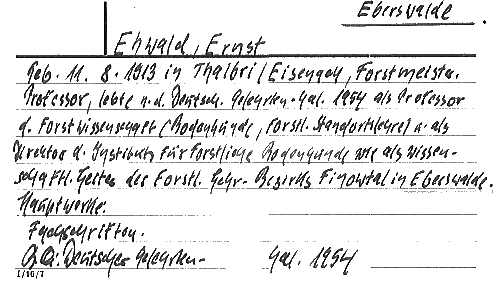 Eberswalde
Ehwald, Ernst
Geb. 11. 8. 1913 in Thalbri/Eisengeh, Forstmeister.
Professor, lebte n. d. Deutsch. Gelehrten-Kal. 1954 als Professor
d. Forstwissenschaft (Bodenkunde, Forstl. Standortslehre) u. als
Direktor d. Instituts für Forstliche Bodenkunde wie als wissen-
schaftl. Leiter des Forstl. Lehr-Bezirks Finowtal in Eberswalde.
Hauptwerke:
Fachschriften.
Qu: Deutscher Gelehrten- Kal. 1954
I/16/7